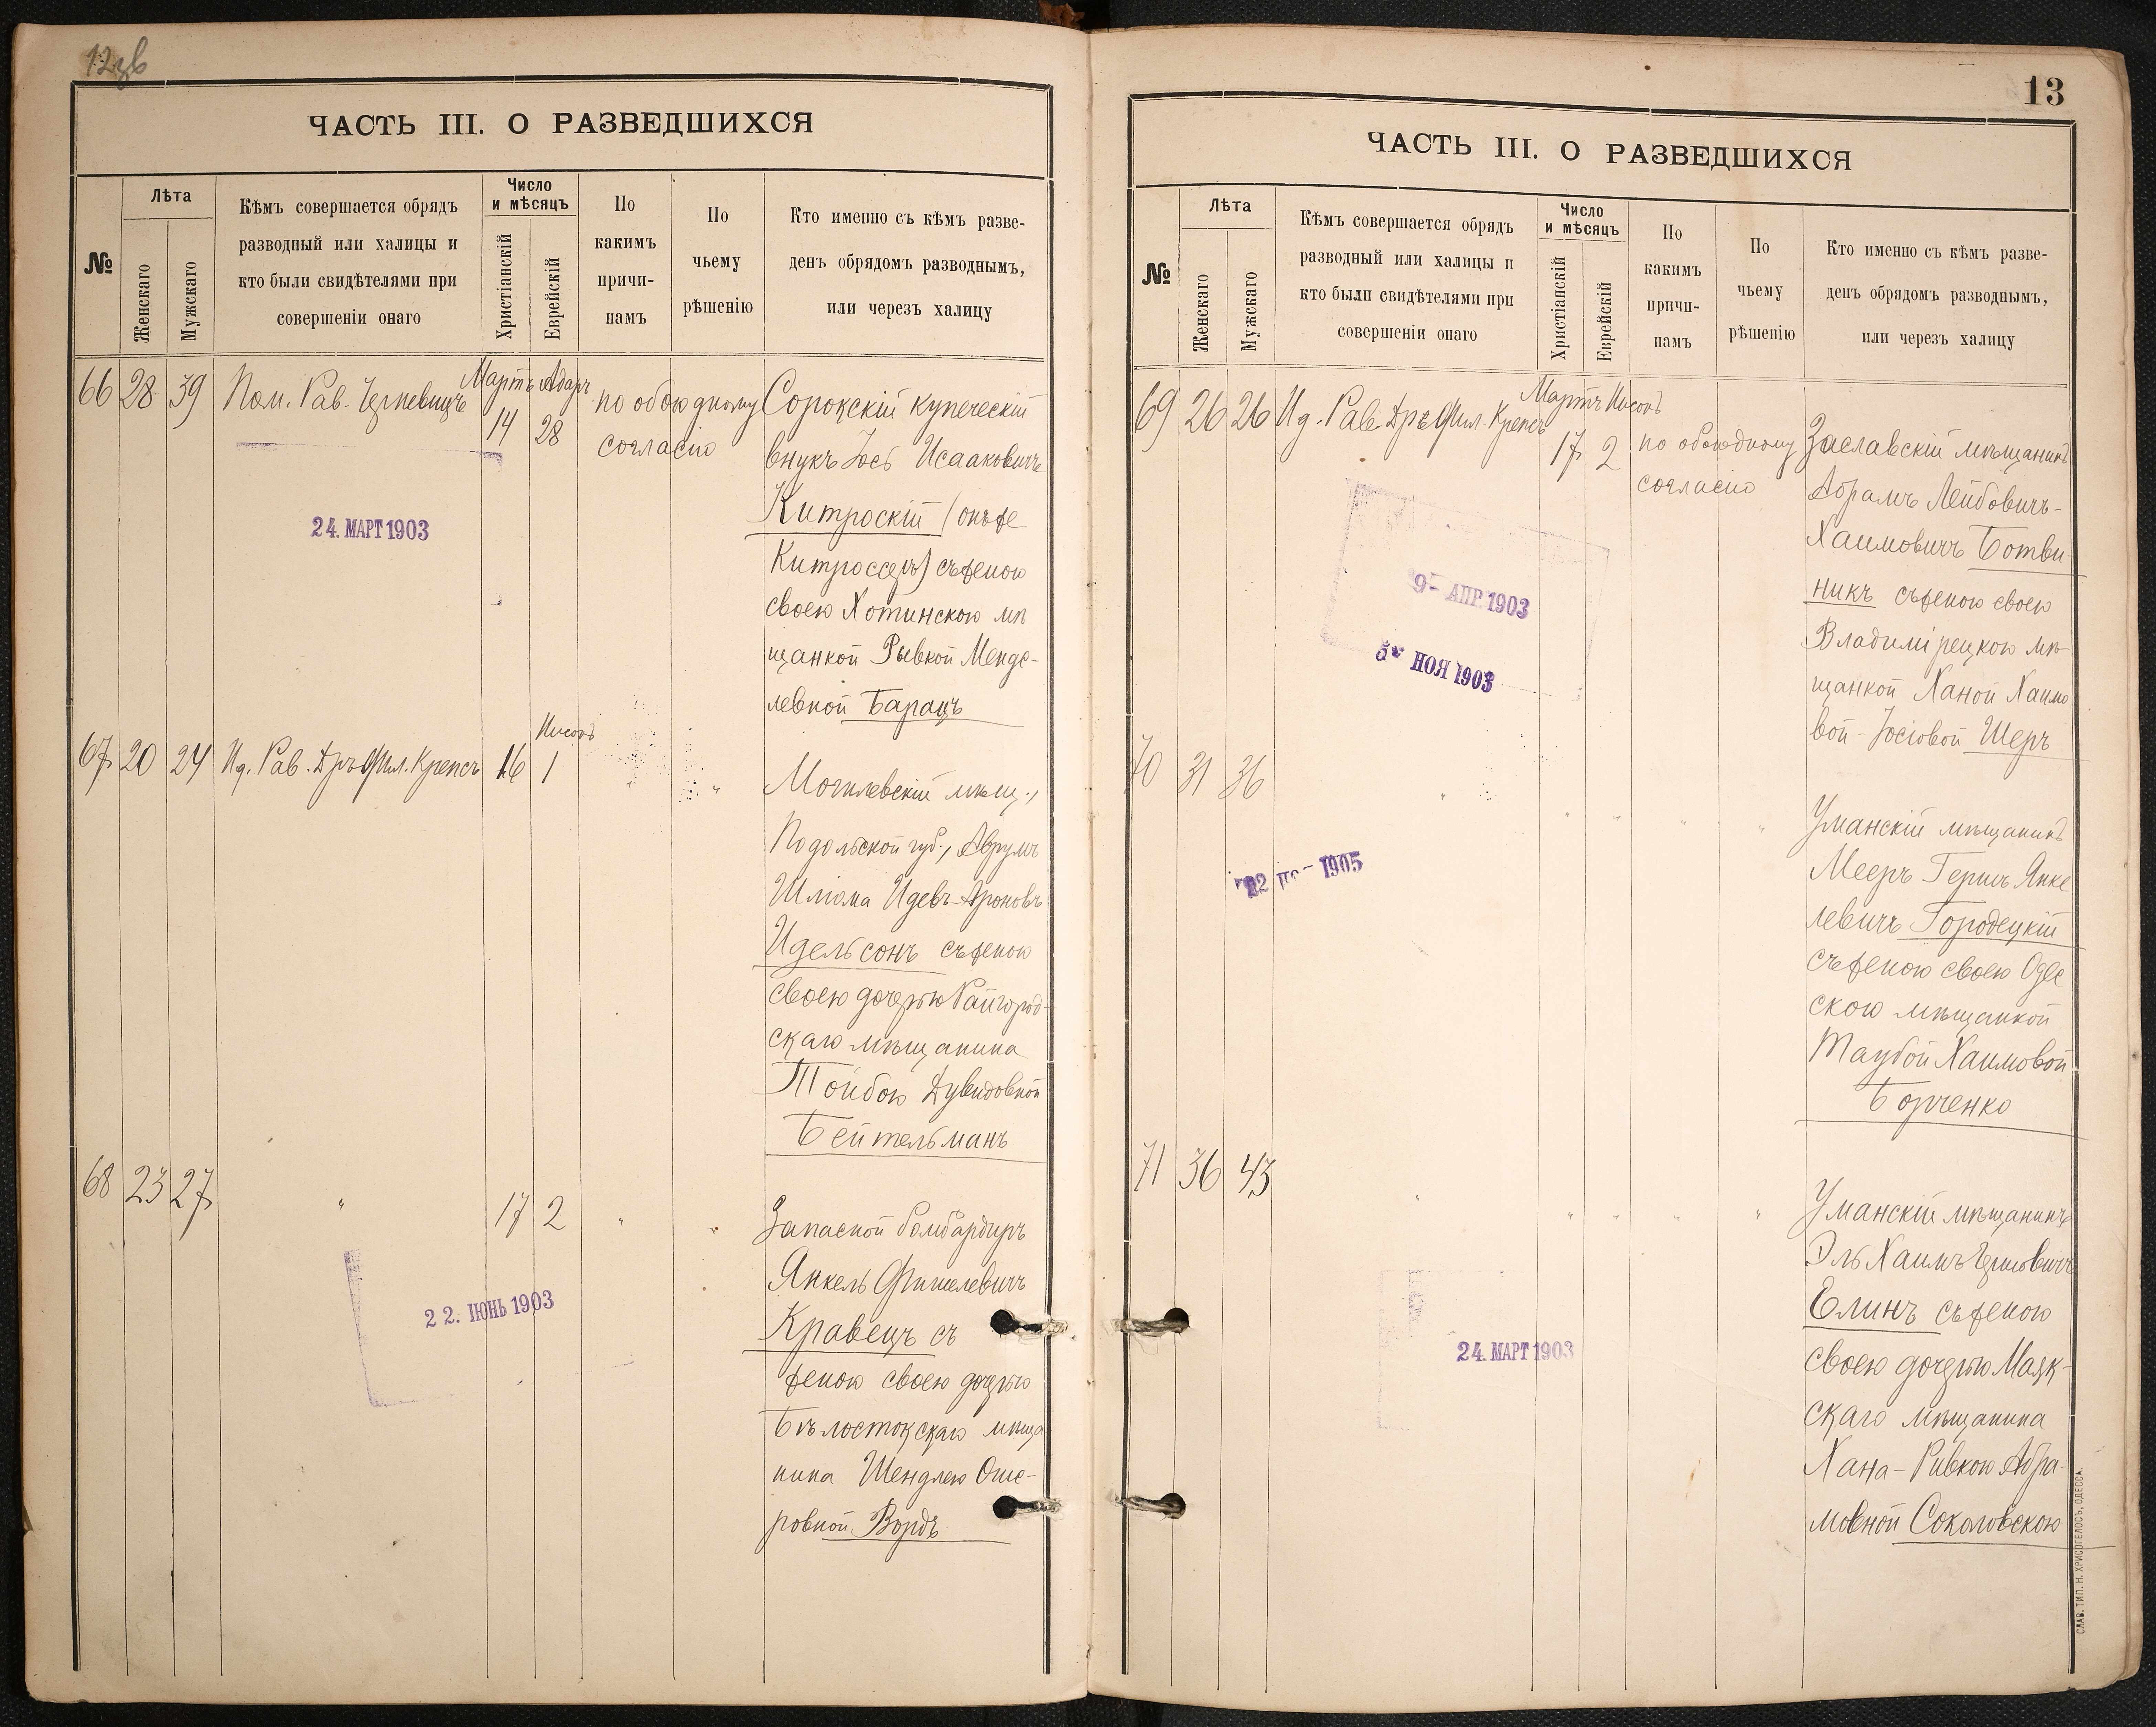 12зв
ЧАСТЬ III. О РАЗВЕДШИХСЯ
№
Лѣта
Женскаго
Мужскаго
Кѣмъ совершается обрядъ
разводный или халицы и
кто были свидѣтелями при
совершеніи онаго
Число
и мѣсяцъ
Христіанскій
Еврейскій
По
какимъ
причи-
намъ
По
чьему
рѣшенію
Кто именно съ кѣмъ разве-
денъ обрядомъ разводнымъ,
или черезъ халицу
66 28 39 Пом. Рав. Черневицъ
Мартъ Адаръ
14 28
по обоюдному
согласію
Сорокскій купеческій
внукъ Іось Исааковичъ
Китроскій (онъ же
Китроссеръ) съ женою
своею Хотинскою мѣ
щанкой Рывкой Менде-
левной Барацъ
24. МАРТ 1903
Нисонъ
67 20 24 Ид. Рав. Дръ Фил. Крепсъ 16 1 "
Могилевскій мѣщ.,
Подольской губ., Аврумъ
Шліома Идевъ-Ароновъ
Идельсонъ съ женою
своею дочерью Райгород-
скаго мѣщанина
Тойбою Дувидовной
Бейтельманъ
68 23 27 " 17 2 " "
Запасной бомбардиръ
Янкель Фишелевичъ
Кравецъ съ
женою своею дочерью
Бѣлостокскаго мѣща
нина Шендлею Оше-
ровной Вордъ
22. ІЮНЬ 1903
13
ЧАСТЬ III. О РАЗВЕДШИХСЯ
№
Лѣта
Женскаго
Мужскаго
Кѣмъ совершается обрядъ
разводный или халицы и
кто были свидѣтелями при
совершеніи онаго
Число
и мѣсяцъ
Христіанскій
Еврейскій
По
какимъ
причи-
намъ
По
чьему
рѣшенію
Кто именно съ кѣмъ разве-
денъ обрядомъ разводнымъ,
или черезъ халицу
69 26 26 Ид. Рав. Дръ Фил. Крепсъ
Мартъ Нисонъ
17 2
по обоюдному
согласію
Заславскій мѣщанинъ
Абрамъ Лейбовичъ-
Хаимовичъ Ботви-
никъ съ женою своею
Владимірецкою мѣ-
щанкой Ханой Хаимо
вой-Іосіовой Шеръ
9- АПР. 1903
5- НОЯ 1903
70 31 36 " " " " "
Уманскій мѣщанинъ
Мееръ Гершъ Янке
левичъ Городецкій
съ женою своею Одес
скою мѣщанкой
Таубой Хаимовой
Борченко
1905
71 36 43 " " " " "
Уманскій мѣщанинъ
Эль Хаимъ Гершовичъ
Елинъ съ женою
своею дочерью Маяк-
скаго мѣщанина
Хана-Ривкою Абра-
мовной Соколовскою
24. МАРТ 1903
СЛАВ. ТИП. Н. ХРИСОГЕЛОСЪ, ОДЕССА.